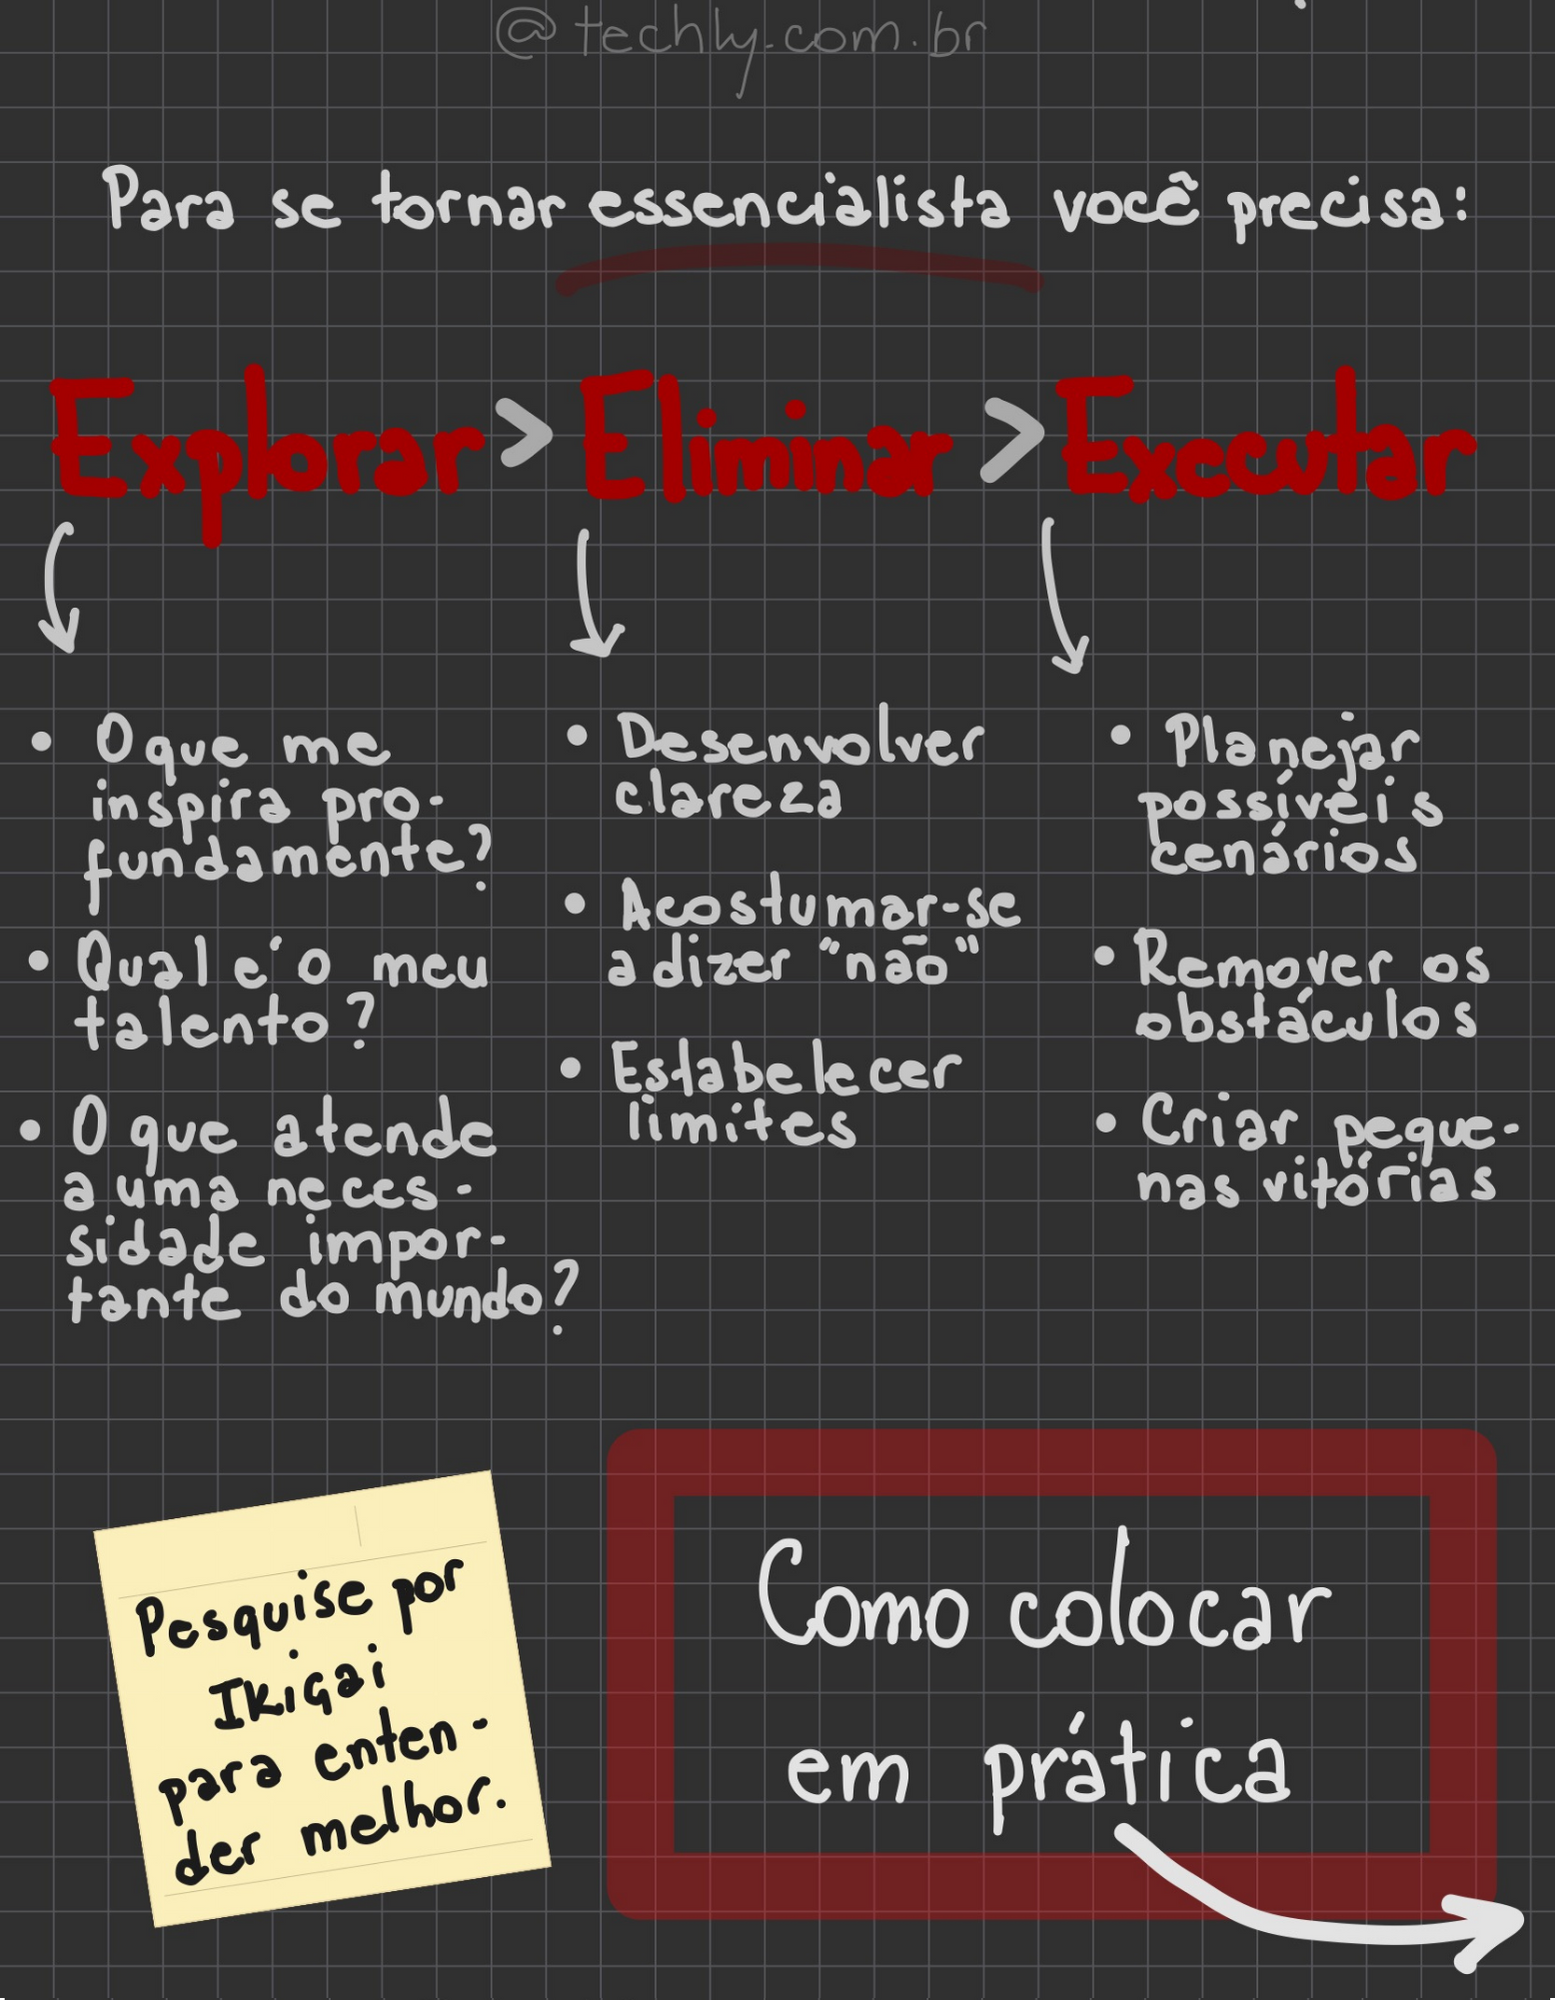 @techly.com.br
Para se tornar essencialista você precisa:
Explorar > Eliminar > Executar
• O que me
inspira pro-
fundamente?
• Qual é o meu
talento?
• O que atende
a uma neces-
sidade impor-
tante do mundo?
• Desenvolver
clareza
• Acostumar-se
a dizer "não"
• Estabelecer
limites
• Planejar
possíveis
cenários
• Remover os
obstáculos
• Criar peque-
nas vitórias
Pesquise por
Ikigai
para enten-
der melhor.
Como colocar
em prática